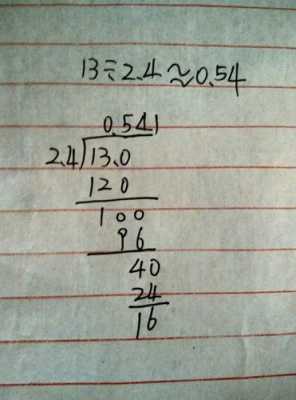 13÷2.4≈0.54
0.541
2.4)13.0
120
100
96
40
24
16